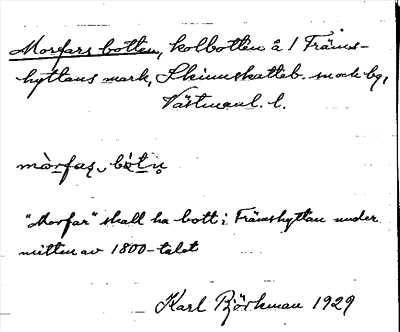 Morfars botten, kolbotten å 1 Främs-
hyttans mark, Skinnskatteb. sock by,
Västmanl. l.
mòrfaṣ bòtn̥
"Morfar" skall ha bott i Främshyttan under
mitten av 1800-talet
Karl Björkman 1929